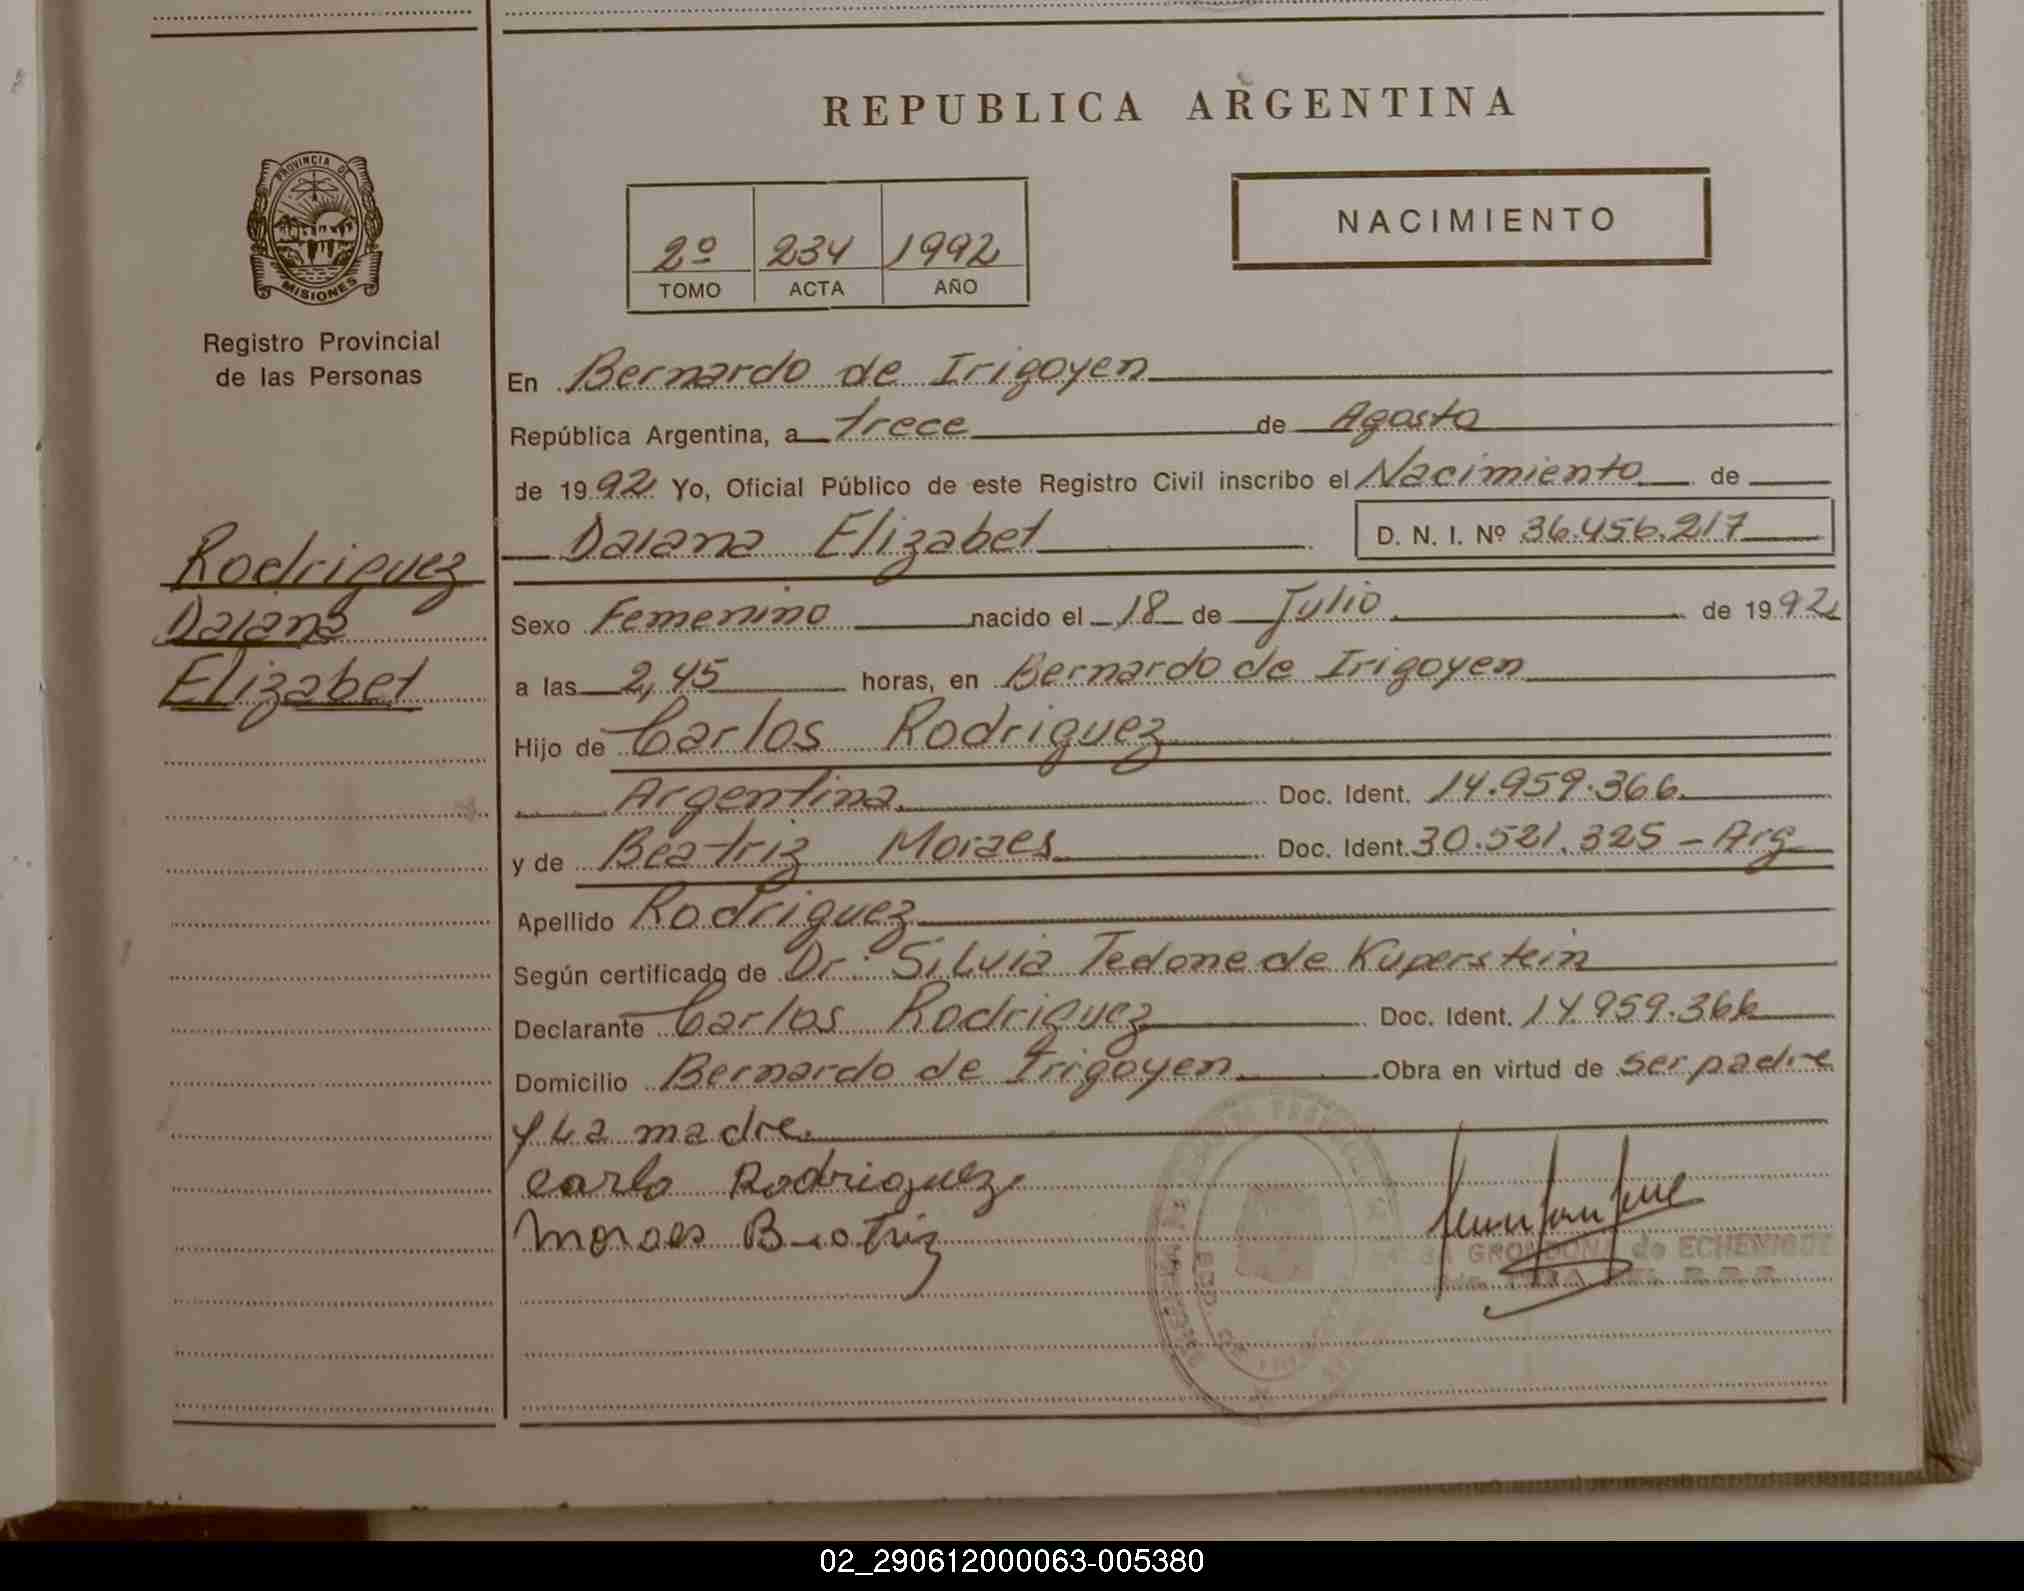 REPUBLICA ARGENTINA
PROVINCIA DE
MISIONES
Registro Provincial
de las Personas
2º 234 1992
TOMO ACTA AÑO
NACIMIENTO
Rodriguez
Daiana
Elizabet
En Bernardo de Irigoyen
República Argentina, a trece de Agosto
de 1992 Yo, Oficial Público de este Registro Civil inscribo el Nacimiento de
Daiana Elizabet D. N. I. Nº 36.456.217
Sexo Femenino nacido el 18 de Julio de 1992
a las 2,45 horas, en Bernardo de Irigoyen
Hijo de Carlos Rodriguez
Argentina Doc. Ident. 14.959.366
y de Beatriz Moraes Doc. Ident. 30.521.325 - Arg
Apellido Rodriguez
Según certificado de Dr: Silvia Tedone de Kuperstein
Declarante Carlos Rodriguez Doc. Ident. 14.959.366
Domicilio Bernardo de Irigoyen Obra en virtud de ser padre
y La madre.
Carlo Rodriguez
Moraes Beatriz
GRONDONA de ECHENIQUE
02_290612000063-005380